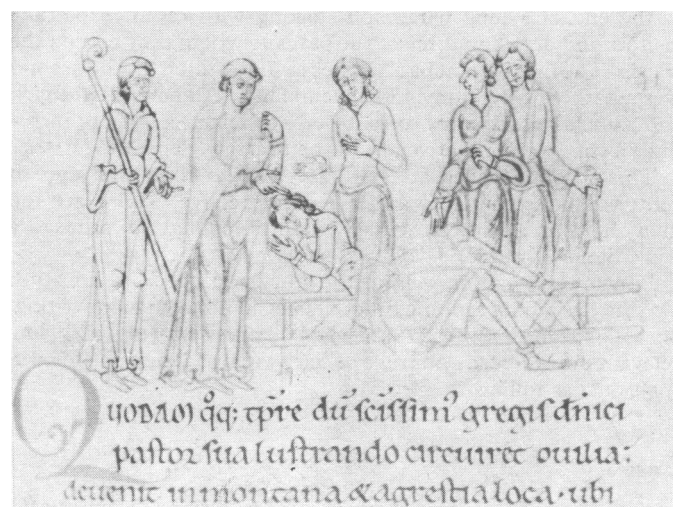 QUODAM q̊q; tp̄re dū sc̄issim᾿ gregis dn̄ici
pastor sua lustrando circuiret ouilia:
deuenit in montana & agrestia loca · ubi